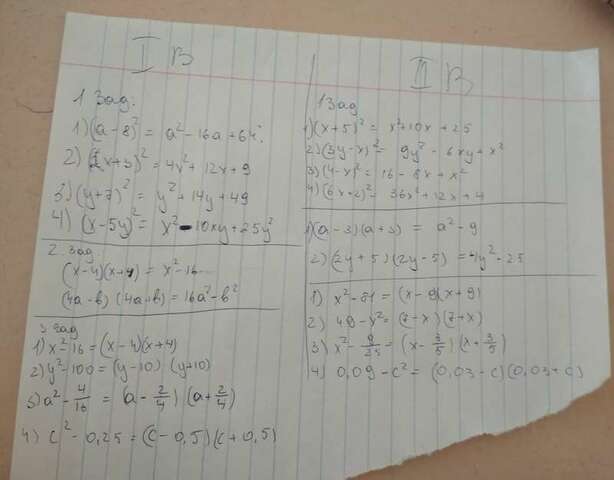 I В
1 Зад.
1) (a-8)² = a² - 16a + 64
2) (2x+3)² = 4x² + 12x + 9
3) (y+7)² = y² + 14y + 49
4) (x-5y)² = x² - 10xy + 25y²
2. зад.
(x-4)(x+4) = x² - 16
(4a-b)(4a+b) = 16a² - b²
3 зад
1) x² - 16 = (x-4)(x+4)
2) y² - 100 = (y-10)(y+10)
3) a² - 4/16 = (a - 2/4)(a + 2/4)
4) c² - 0,25 = (c - 0,5)(c + 0,5)
II В
1 Зад
1) (x+5)² = x² + 10x + 25
2) (3y-x)² = 9y² - 6xy + x²
3) (4-x)² = 16 - 8x + x²
4) (6x-2)² = 36x² + 12x + 4
1) (a-3)(a+3) = a² - 9
2) (2y+5)(2y-5) = 4y² - 25
1) x² - 81 = (x-9)(x+9)
2) 49 - x² = (7-x)(7+x)
3) x² - 9/25 = (x - 3/5)(x + 3/5)
4) 0,09 - c² = (0,03 - c)(0,03 + c)